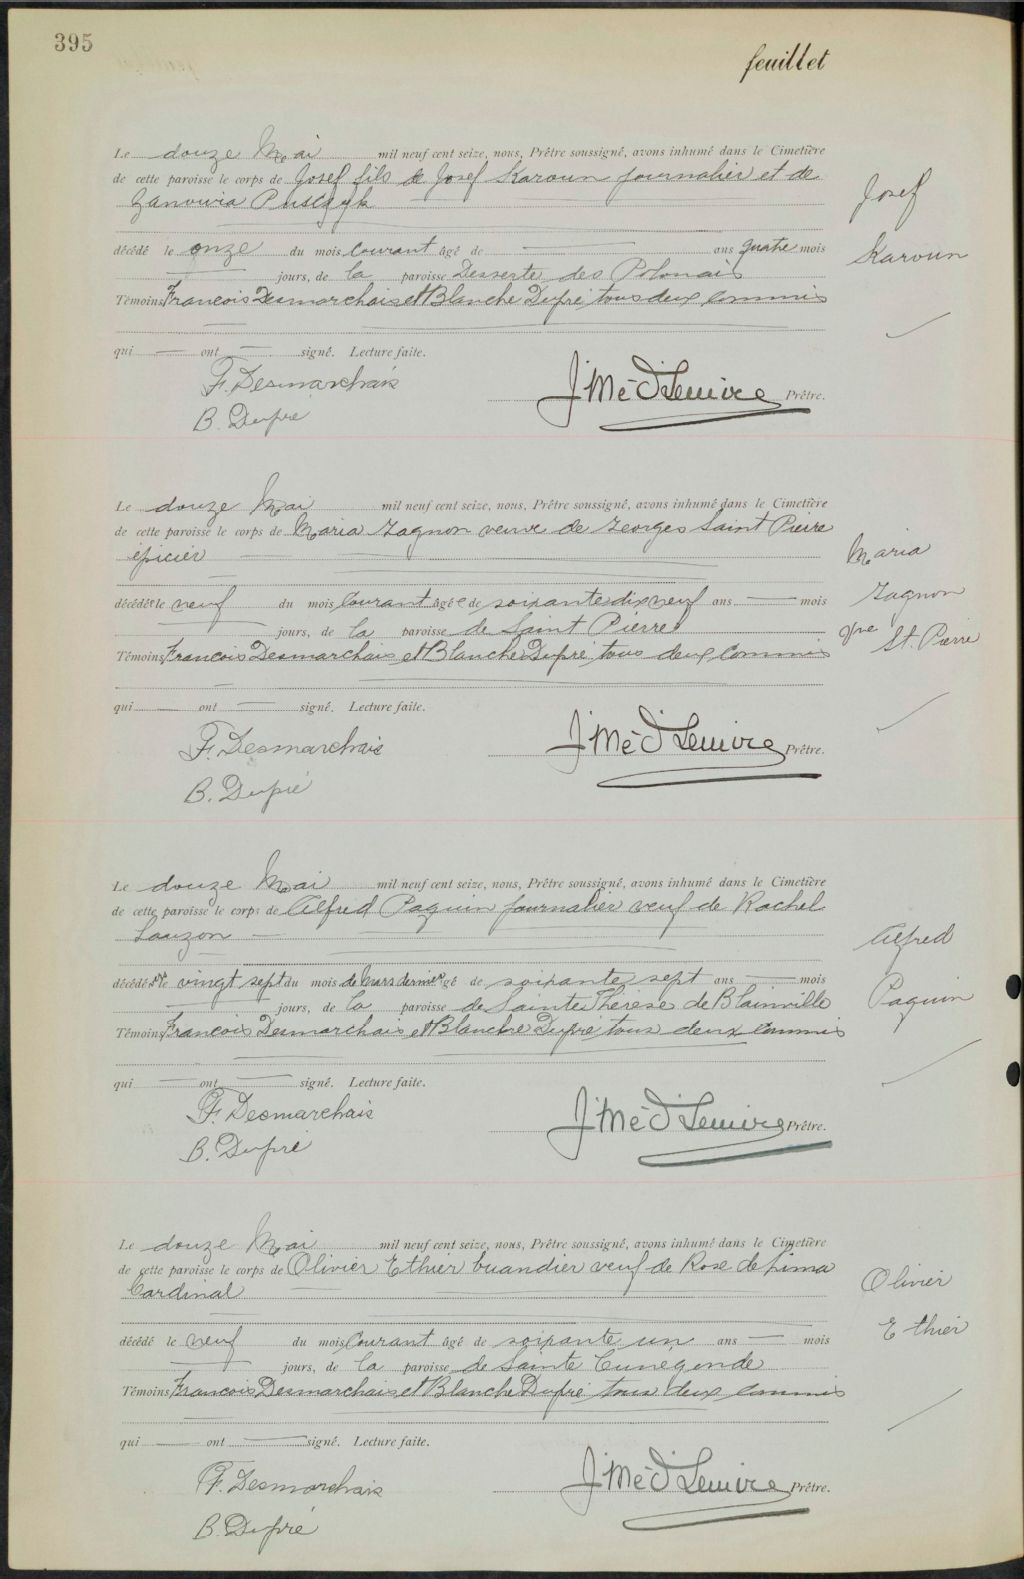 395
feuillet
Le douze Mai mil neuf cent seize, nous, Prêtre soussigné, avons inhumé dans le Cimetière
de cette paroisse le corps de Josef fils de Josef Karoun journalier et de
décédé le onze du mois courant âgé de ans quatre mois
jours, de la paroisse Desserte des Polonais
Témoins Francois Desmarchais et Blanche Dupré tous deux commis
qui ont signé. Lecture faite.
F. Desmarchais
B. Dupré
Prêtre.
Josef
Karoun
Le douze Mai mil neuf cent seize, nous, Prêtre soussigné, avons inhumé dans le Cimetière
de cette paroisse le corps de Maria Zagnon veuve de Georges Saint Pierre
épicier
décédée le neuf du mois courant âgée de soixante dix neuf ans mois
jours, de la paroisse de Saint Pierre
Témoins Francois Desmarchais et Blanche Dupré tous deux commis
qui ont signé. Lecture faite.
F. Desmarchais
B. Dupré
J Mé D Lemire Prêtre.
Maria
Zagnon
St. Pierre
Le douze Mai mil neuf cent seize, nous, Prêtre soussigné, avons inhumé dans le Cimetière
de cette paroisse le corps de Alfred Paquin journalier veuf de Rachel
Lauzon
décédé le vingt sept du mois de Mars dernier âgé de soixante sept ans mois
jours, de la paroisse de Sainte Thérèse de Blainville
Témoins Francois Desmarchais et Blanche Dupré tous deux commis
qui ont signé. Lecture faite.
F. Desmarchais
B. Dupré
J Mé D Lemire Prêtre.
Alfred
Paquin
Le douze Mai mil neuf cent seize, nous, Prêtre soussigné, avons inhumé dans le Cimetière
de cette paroisse le corps de Olivier Ethier buandier veuf de Rose de Lima
Cardinal
décédé le neuf du mois courant âgé de soixante un ans mois
jours, de la paroisse de Sainte Cunégonde
Témoins Francois Desmarchais et Blanche Dupré tous deux commis
qui ont signé. Lecture faite.
F. Desmarchais
B. Dupré
J Mé D Lemire Prêtre.
Olivier
Ethier